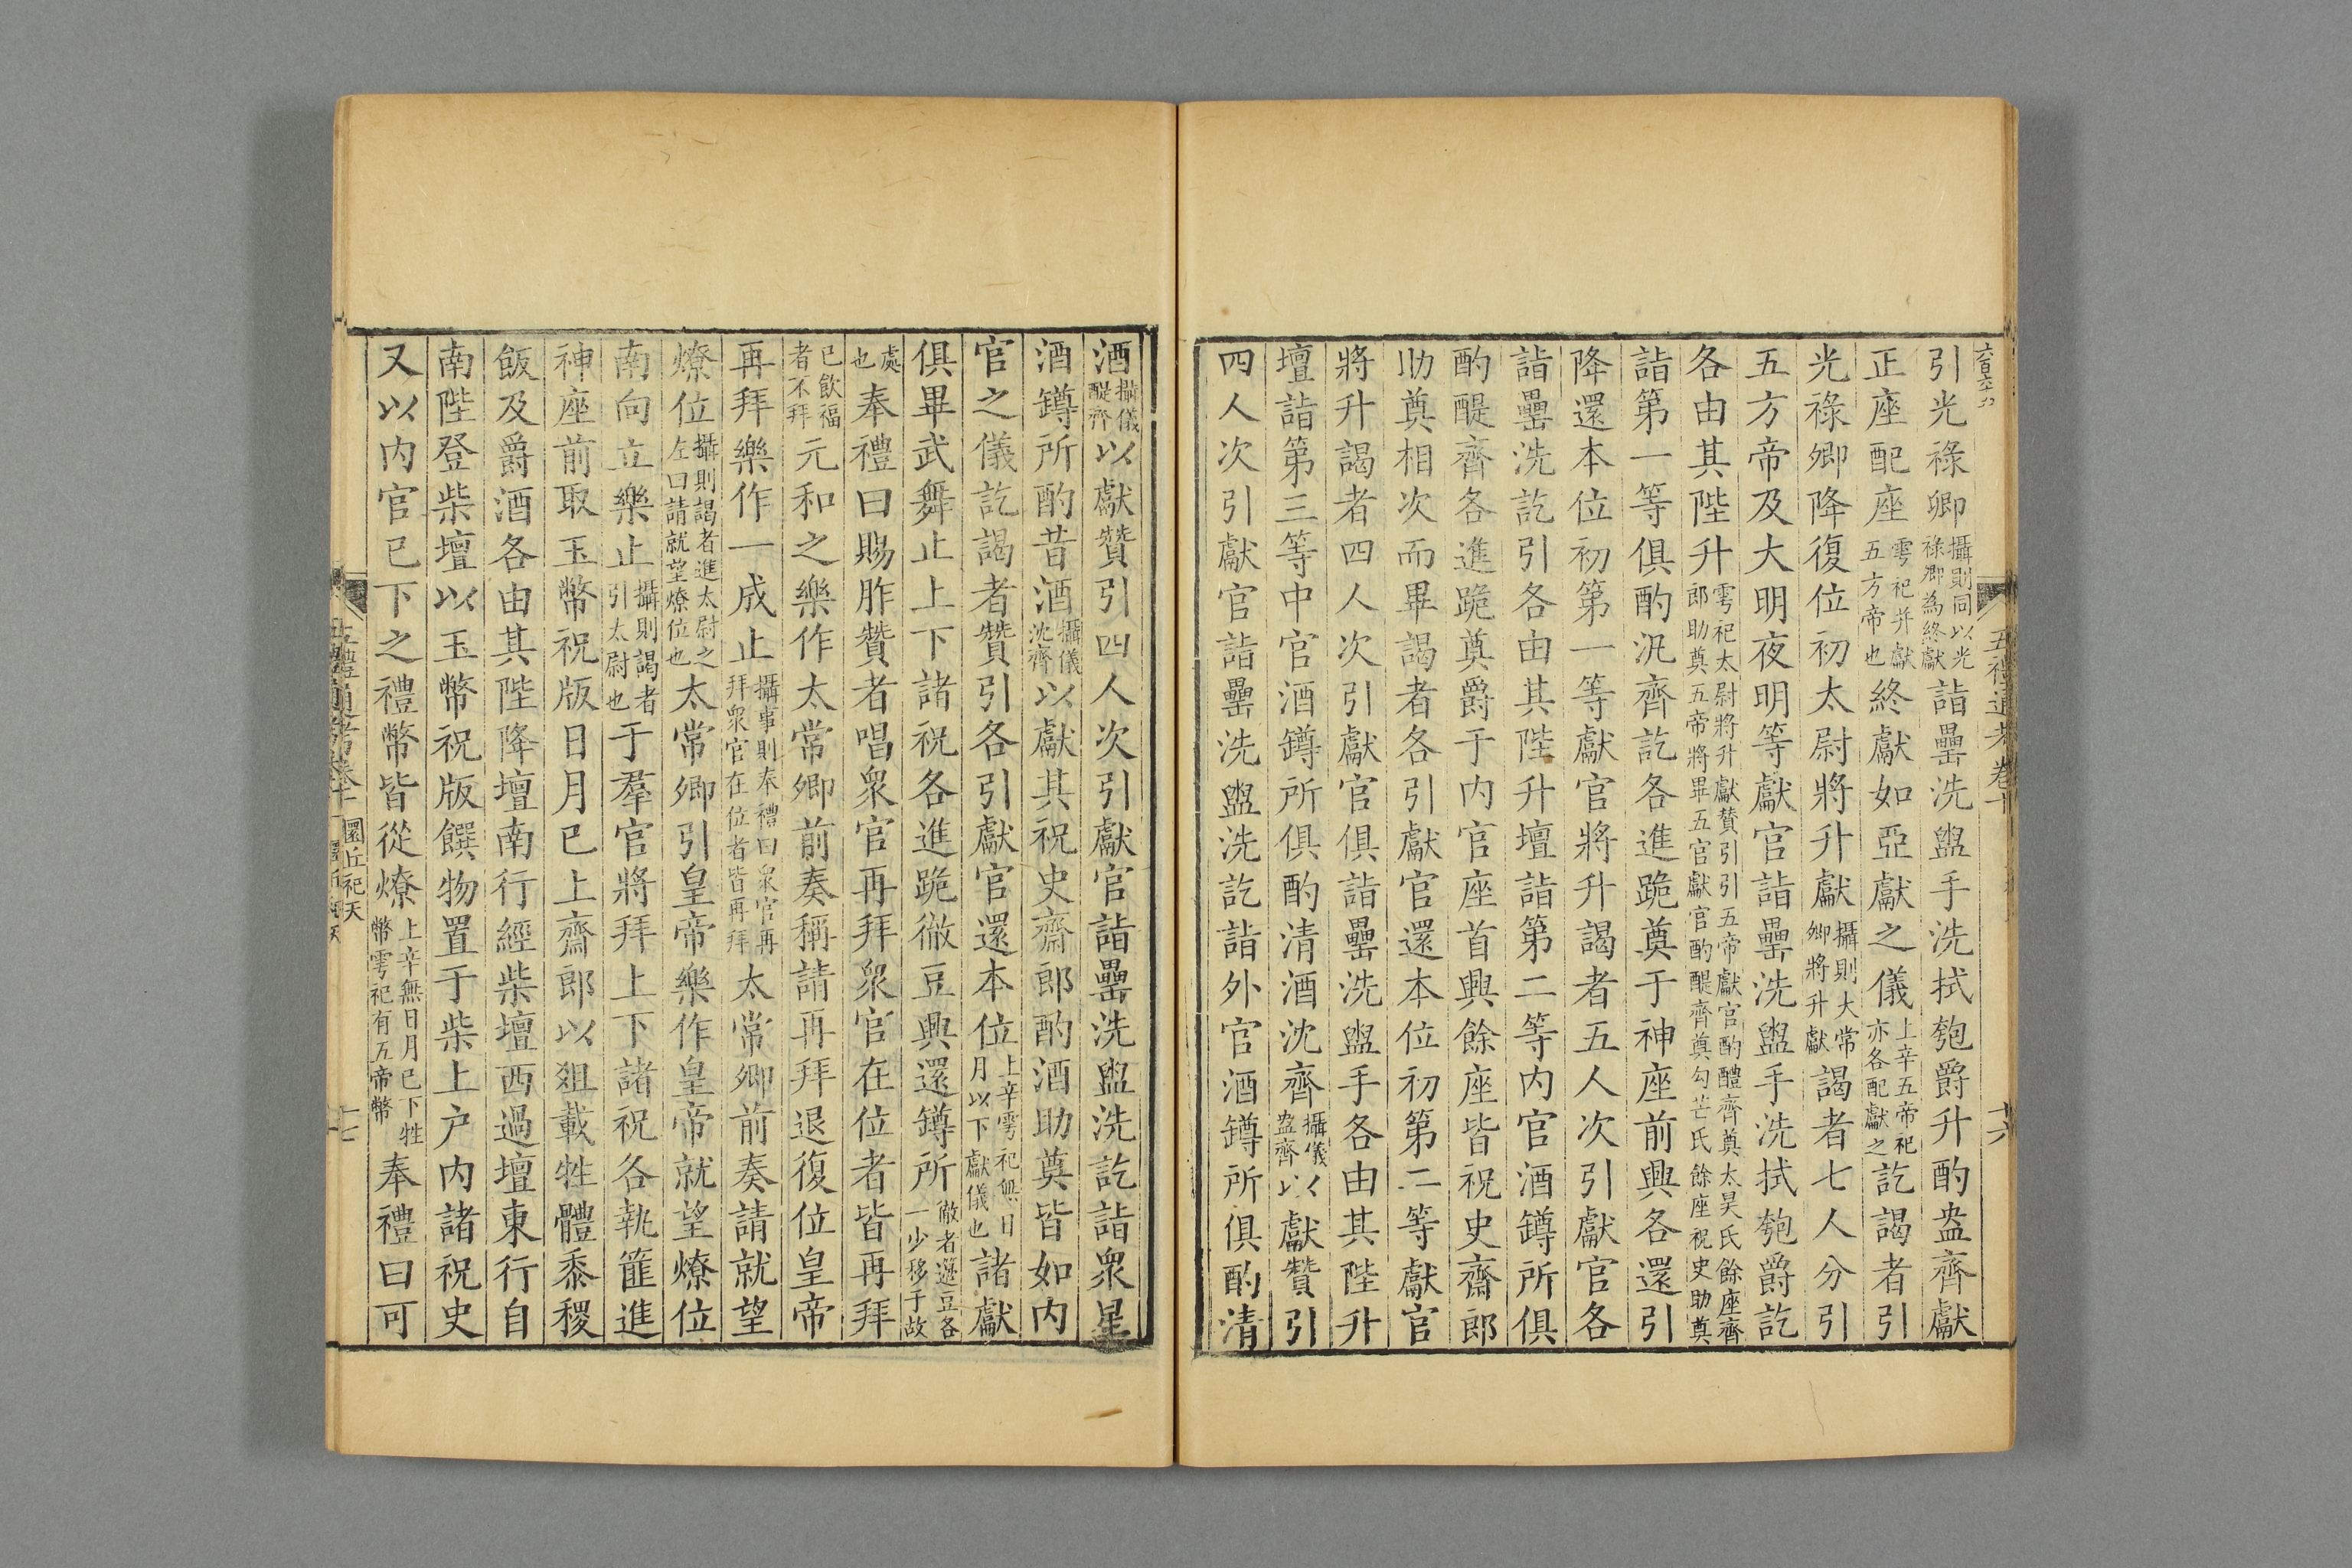 五禮通考卷十
引光祿卿攝則同以光祿卿為終獻詣罍洗盥手洗拭匏爵升酌盎齊獻
正座配座雩祀并獻五方帝也終獻如亞獻之儀上辛五帝祀亦各配獻之訖謁者引
光祿卿降復位初太尉將升獻攝則大常卿將升獻謁者七人分引
五方帝及大明夜明等獻官詣罍洗盥手洗拭匏爵訖
各由其陛升雩祀太尉將升獻贊引引五帝獻官酌醴齊奠太昊氏餘座齊郎助奠五帝將畢五官獻官酌醍齊奠勾芒氏餘座祝史助奠
詣第一等俱酌汎齊訖各進跪奠于神座前興各還引
降還本位初第一等獻官將升謁者五人次引獻官各
詣罍洗訖引各由其陛升壇詣第二等內官酒鐏所俱
酌醍齊各進跪奠爵于內官座首興餘座皆祝史齋郎
助奠相次而畢謁者各引獻官還本位初第二等獻官
將升謁者四人次引獻官俱詣罍洗盥手各由其陛升
壇詣第三等中官酒鐏所俱酌清酒沈齊攝儀盎齊以獻贊引
四人次引獻官詣罍洗盥洗訖詣外官酒鐏所俱酌清
酒攝儀醍齊以獻贊引四人次引獻官詣罍洗盥洗訖詣眾星
酒鐏所酌昔酒攝儀沈齊以獻其祝史齋郎酌酒助奠皆如內
官之儀訖謁者贊引各引獻官還本位上辛雩祀無日月以下獻儀也諸獻
俱畢武舞止上下諸祝各進跪徹豆興還鐏所徹者籩豆各一少移于故
處也奉禮曰賜胙贊者唱眾官再拜眾官在位者皆再拜
已飲福者不拜元和之樂作太常卿前奏稱請再拜退復位皇帝
再拜樂作一成止攝事則奉禮曰眾官再拜眾官在位者皆再拜太常卿前奏請就望
燎位攝則謁者進太尉之左曰請就望燎位也太常卿引皇帝樂作皇帝就望燎位
南向立樂止攝則謁者引太尉也于羣官將拜上下諸祝各執篚進
神座前取玉幣祝版日月已上齋郎以俎載牲體黍稷
飯及爵酒各由其陛降壇南行經柴壇西過壇東行自
南陛登柴壇以玉幣祝版饌物置于柴上戶內諸祝史
又以內官已下之禮幣皆從燎上辛無日月已下牲幣雩祀有五帝幣奉禮曰可
圜丘祀天